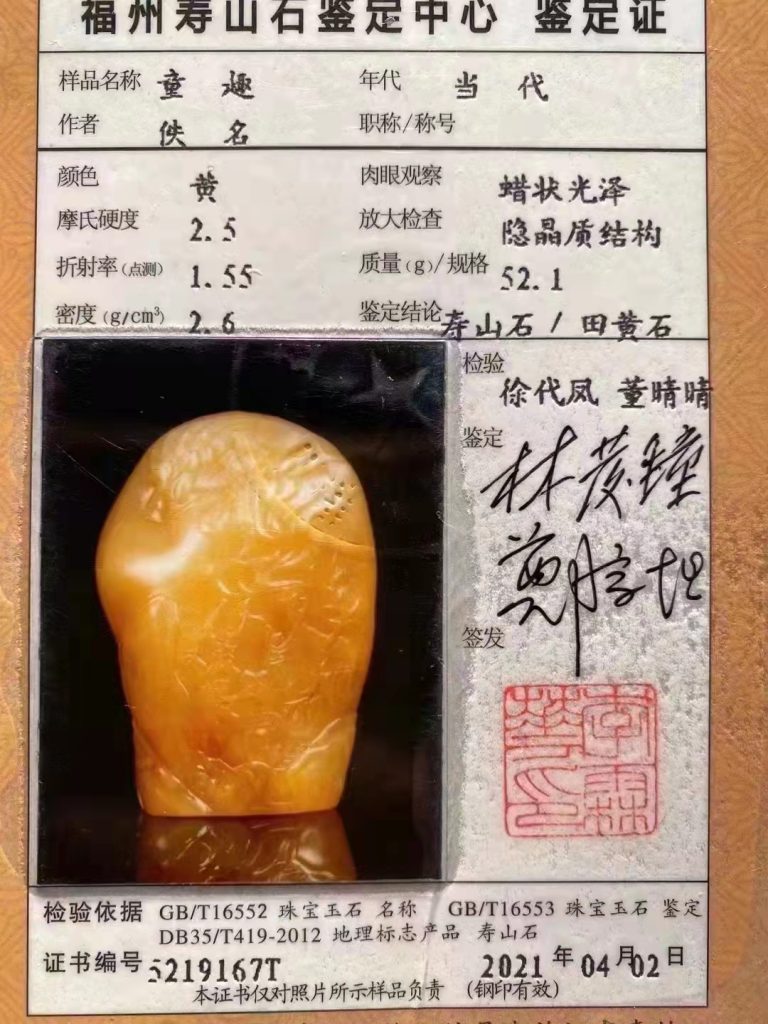 福州寿山石鉴定中心 鉴定证
样品名称 童趣 年代 当代
作者 佚名 职称/称号
颜色 黄 肉眼观察 蜡状光泽
摩氏硬度 2.5 放大检查 隐晶质结构
折射率(点测) 1.55 质量(g)/规格 52.1
密度(g/cm³) 2.6 鉴定结论 寿山石 / 田黄石
检验
徐代凤 董晴晴
鉴定
林
郑
签发
检验依据 GB/T16552 珠宝玉石 名称 GB/T16553 珠宝玉石 鉴定
DB35/T419-2012 地理标志产品 寿山石
证书编号 5219167T 2021 年 04 月 02 日
本证书仅对照片所示样品负责 (钢印有效)